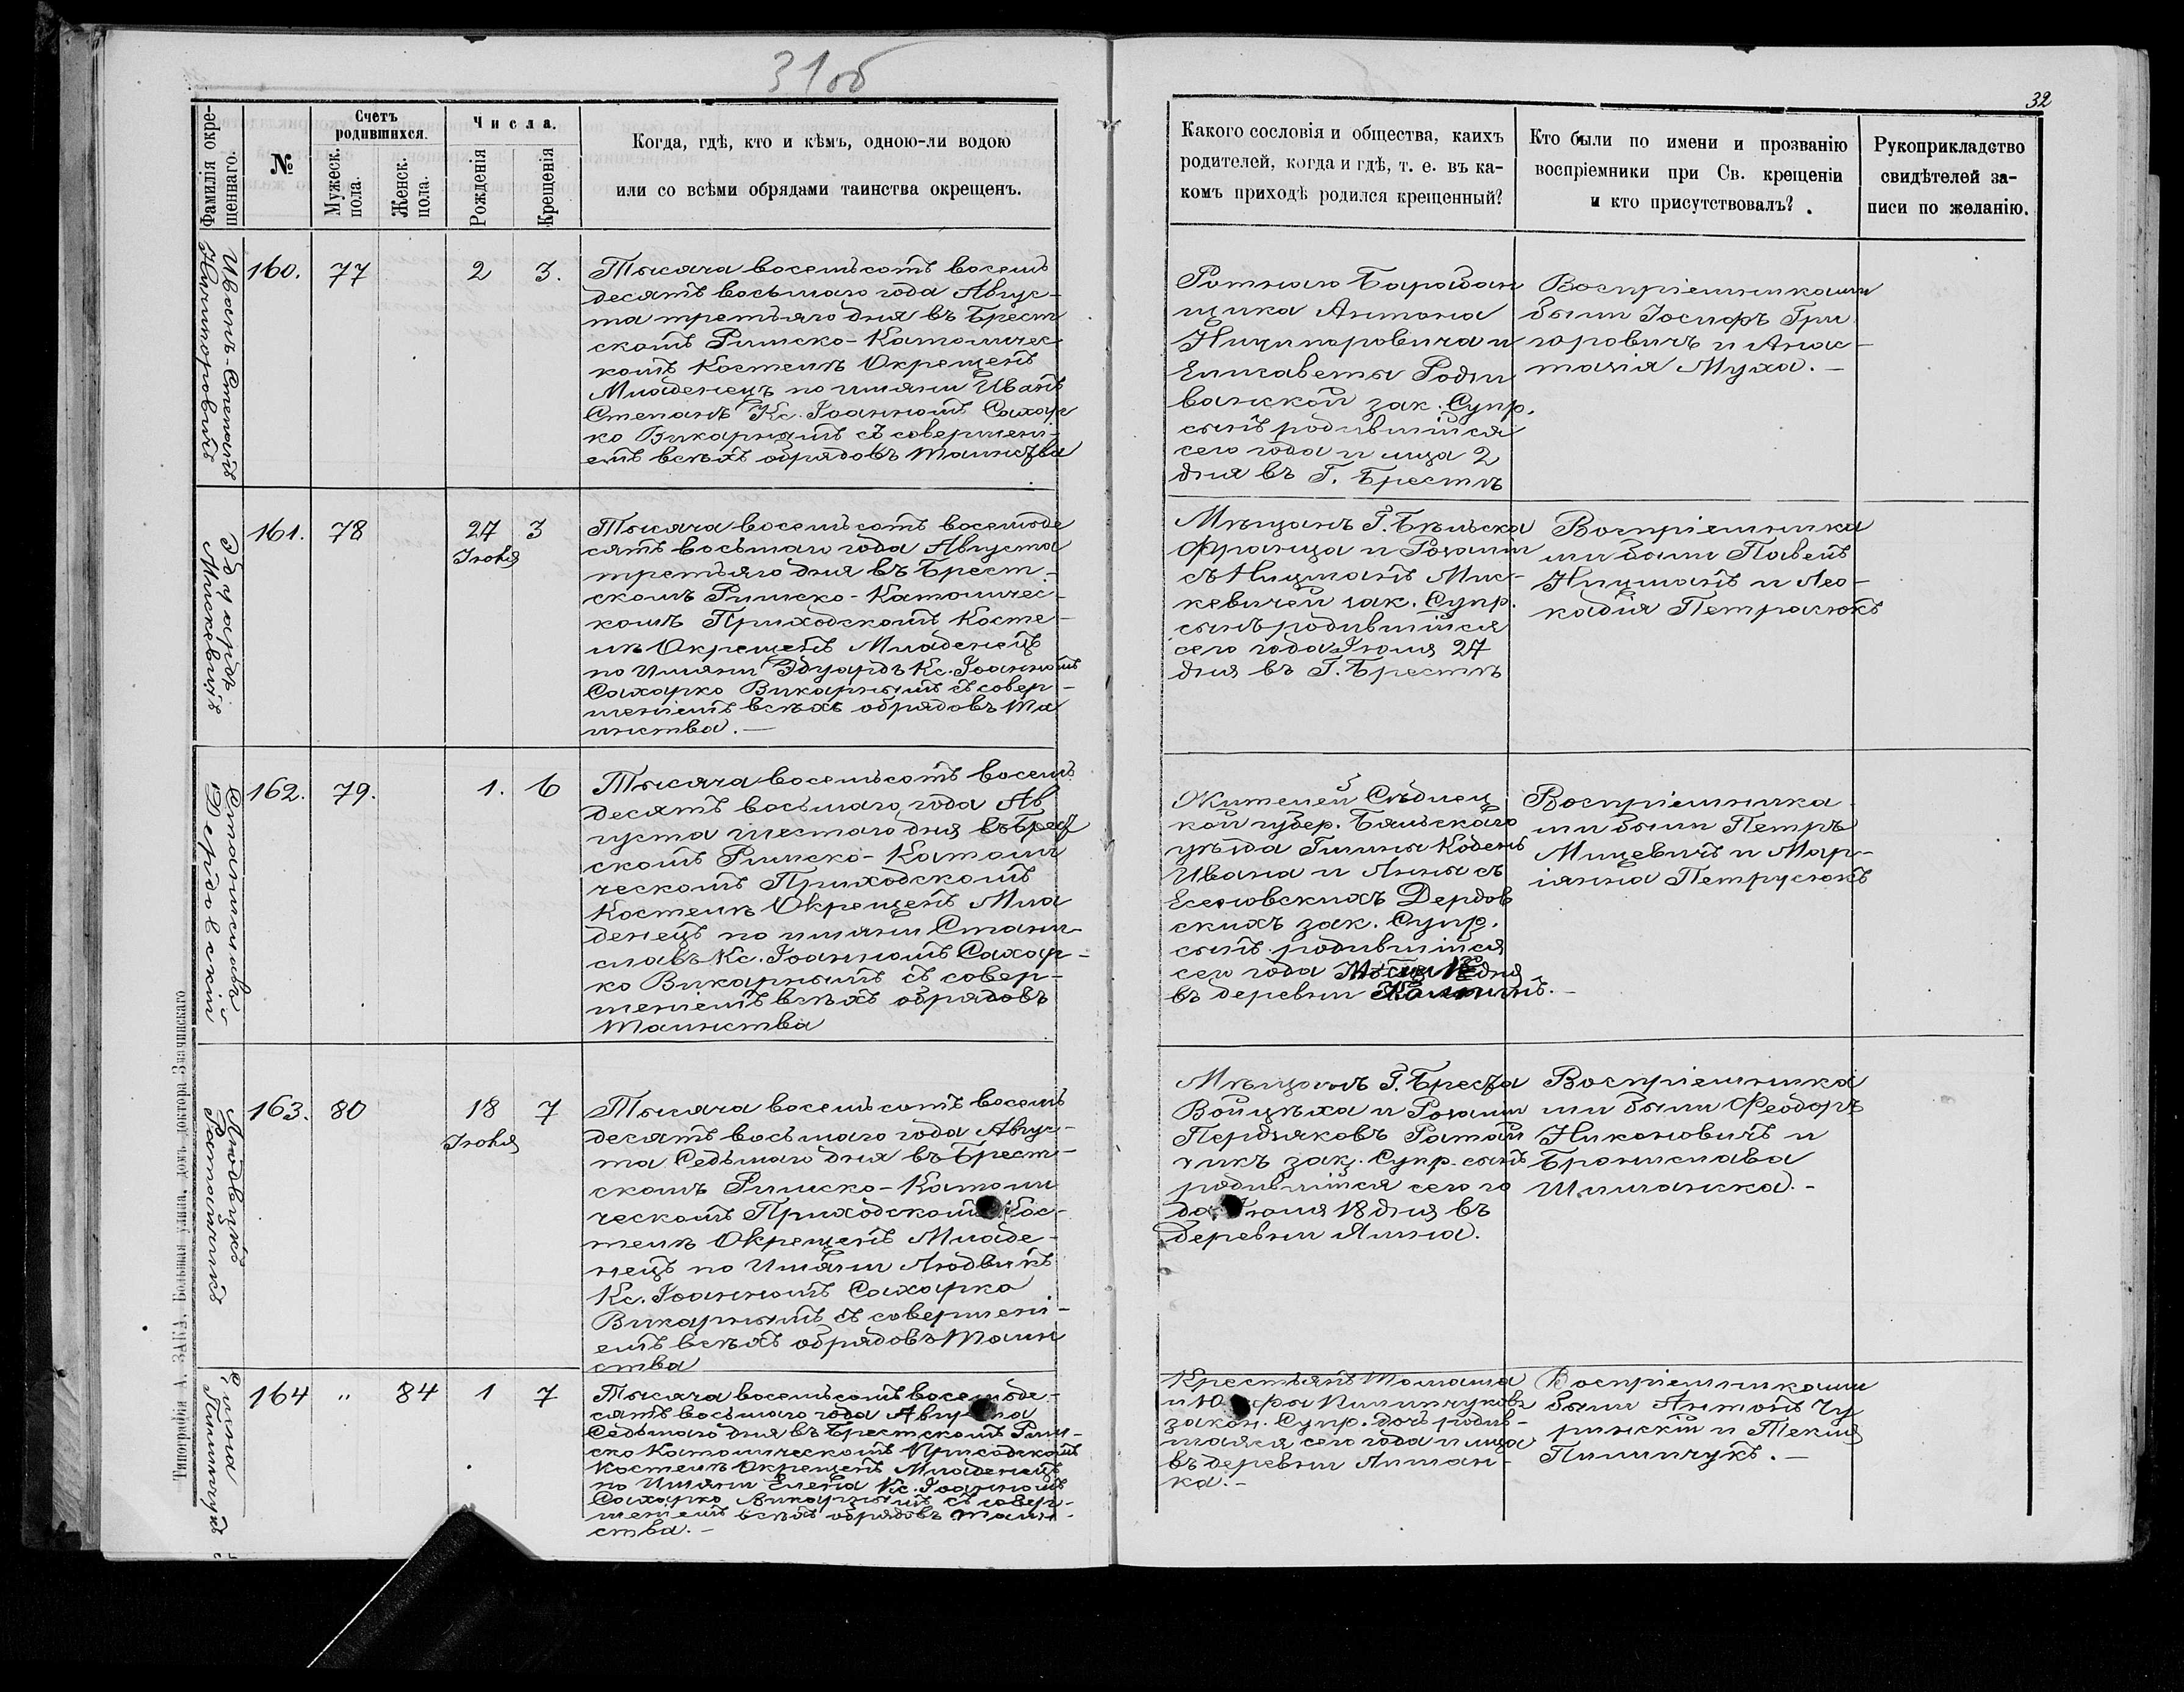 31об
32
Фамилія окре-
щеннаго.
№
Счетъ
родившихся.
Мужеск.
пола.
Женск.
пола.
Числа.
Рожденія
Крещенія
Когда, гдѣ, кто и кѣмъ, одною-ли водою
или со всѣми обрядами таинства окрещенъ.
Какого сословія и общества, каихъ
родителей, когда и гдѣ, т. е. въ ка-
комъ приходѣ родился крещенный?
Кто были по имени и прозванію
воспріемники при Св. крещеніи
и кто присутствовалъ?
Рукоприкладство
свидѣтелей за-
писи по желанію.
Иванъ-Степанъ
160.
77
2
3.
Тысяча восемьсотъ восемь
десятъ восьмаго года Авгус-
та третьяго дня въ Брест
скомъ Римско-Католичес-
комъ Костелѣ Окрещенъ
Младенецъ по имяни Иванъ
Степанъ Кс. Іоанномъ Сахар
ко Викарнымъ съ совершені-
емъ всѣхъ обрядовъ таинства
Ротнаго Барабан
щика Антона
Ницыпоровича и
Елисаветы
зак. Супр.
сынъ родившійся
сего года и мца 2
дня въ Г. Брестѣ
Воспріемниками
были Іосифъ Гри
горовичъ и Анас-
тазія Муха.-
Эдуардъ
Мискевичъ
161.
78
27
Іюля
3
Тысяча восемьсотъ восемьде
сятъ восьмаго года Августа
третьяго дня въ Брест-
скомъ Римско-Католичес-
комъ Приходскомъ Косте-
лѣ Окрещенъ Младенецъ
по Имяни Эдуардъ Кс. Іоанномъ
Сахарко Викарнымъ съ совер-
шеніемъ всѣхъ обрядовъ Та
инства.-
Мѣщанъ Г. Бѣльска
Франца и Розаліи
съ Ницманъ Мис-
кевичей зак. Супр.
сынъ родившійся
сего года Іюля 27
дня въ Г. Брестѣ
Воспріемника
ми были Павелъ
Ницманъ и Лео-
кадія Петрасюкъ
Станиславъ
Дердовскій
162.
79.
1.
6
Тысяча восемьсотъ восемь
десятъ восьмаго года Ав
густа шестаго дня въ Брест
скомъ Римско-Католи
ческомъ Приходскомъ
Костелѣ Окрещенъ Мла
денецъ по имяни Стани-
славъ Кс. Іоанномъ Сахар-
ко Викарнымъ съ совер-
шеніемъ всѣхъ обрядовъ
Таинства
Жителей Сѣдлец
кой губер. Бяльскаго
уѣзда Гмины Кодень
Ивана и Анны съ
Дердов
скихъ зак. Супр.
сынъ родившійся
сего года
въ деревни
Воспріемника
ми были Петръ
Мицевичъ и Мар-
іянна Петрусюкъ
Людвикъ
163.
80
18
Іюля
7
Тысяча восемьсотъ восемь
десятъ восьмаго года Авгус-
та Седьмаго дня въ Брест-
скомъ Римско-Католи
ческомъ Приходскомъ Кос-
телѣ Окрещенъ Младе-
нецъ по Имяни Людвикъ
Кс. Іоанномъ Сахарко
Викарнымъ съ совершені-
емъ всѣхъ обрядовъ Таин
ства
Мѣщанъ Г. Бреста
Войцѣха и Розаліи
зак. Супр. сынъ
родившійся сего го
да Іюля 18 дня въ
деревни
Воспріемника
ми были Феодоръ
Никоновичъ и
Брониславa
Шиманска.-
Елена
Пилипчукъ
164
"
84
1
7
Тысяча восемьсотъ восемьде-
сятъ восьмаго года Августа
Седьмаго дня въ Брестскомъ Рим-
ско Католическомъ Приходскомъ
Костелѣ Окрещенъ Младенецъ
по Имяни Елена Кс. Іоанномъ
Сахарко Викарнымъ съ совер-
шеніемъ всѣхъ обрядовъ таин-
ства.-
Крестьянъ Томаша
и Пилипчуковъ
закон. Супр. дочь родив-
шаяся сего года и мца
въ деревни
Воспріемниками
были Антонъ
и Текля
Пилипчукъ.-
Типографія А. ЗАКА, Большая улица, домъ доктора Значинскаго